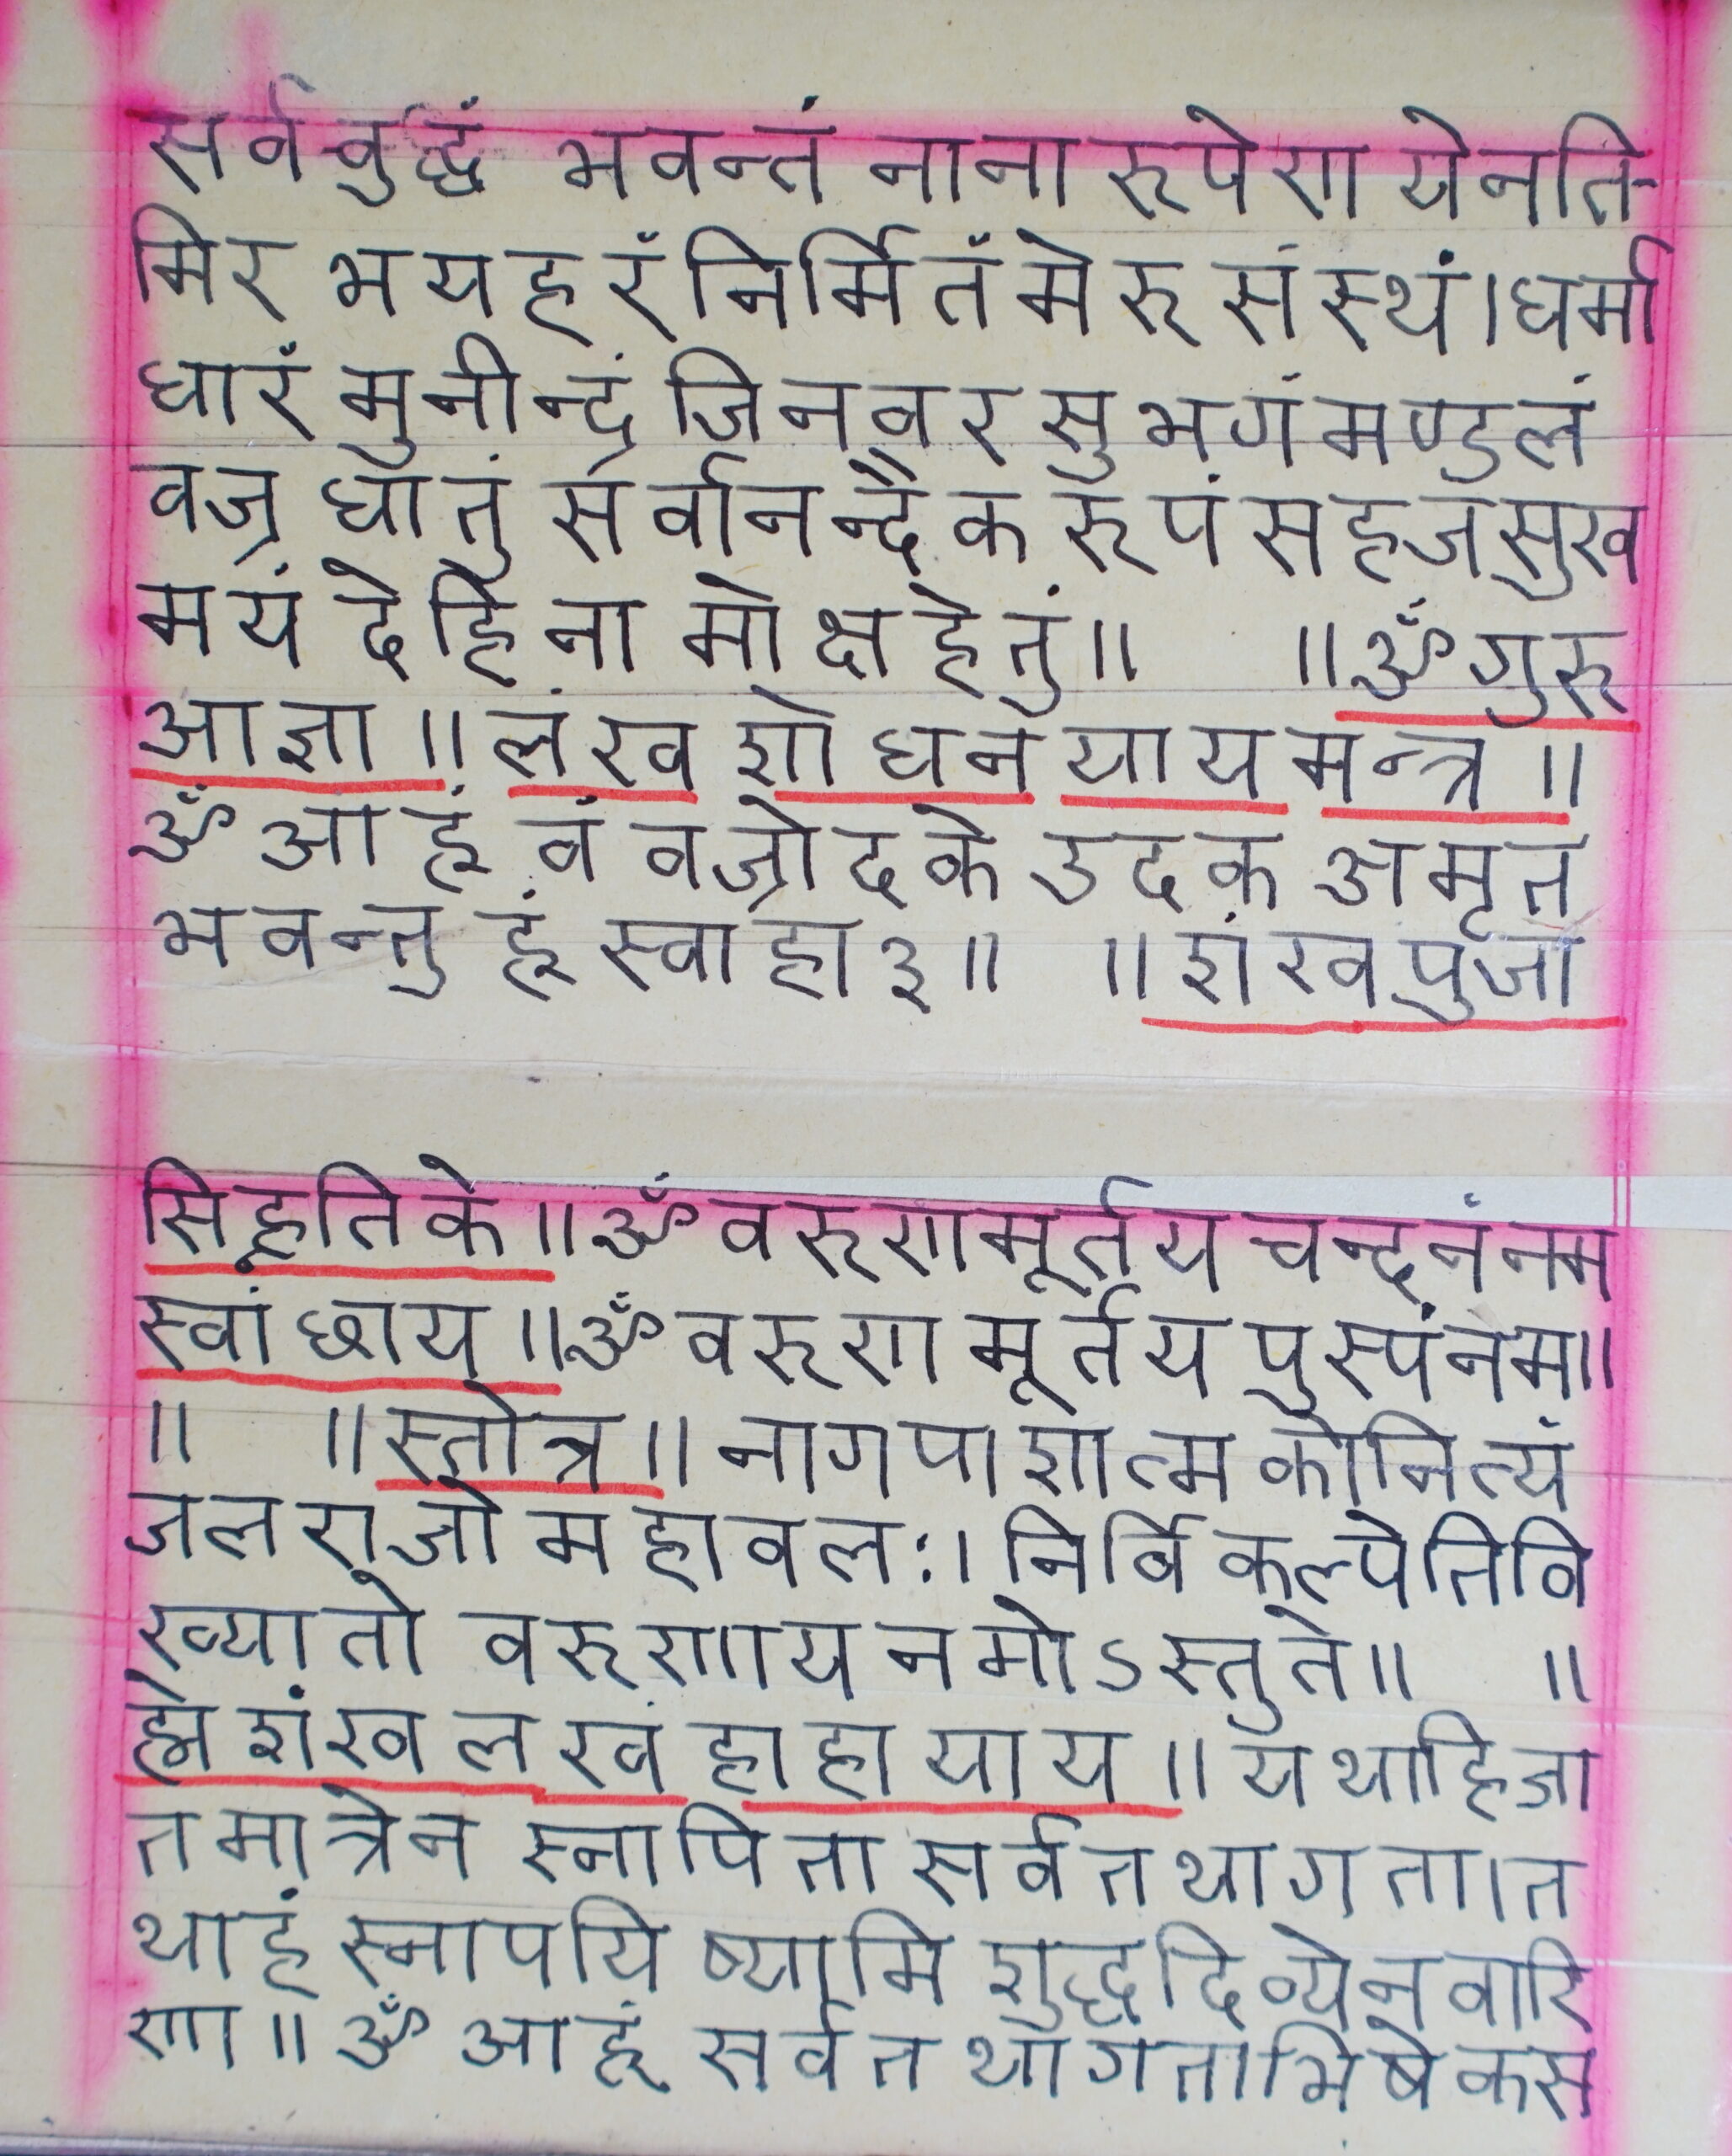 सर्ववुद्धं भवन्तं नाना रुपेण येनति-
मिर भयहरं निर्मितं मेरु संस्थं।धर्मा
धारं मुनीन्द्रं जिनवर सुभगं मण्डलं
वज्र धातुं सर्वानन्दैक रुपं सहजसुख
मयं देहिना मोक्षहेतुं॥ ॥ॐ गुरु
आज्ञा॥ लंख शोधन याय मन्त्र॥
ॐ आ हूं वं वज्रोदके उदक अमृत
भवन्तु हूं स्वाहा ३॥ ॥ शंखपुजा
सिह्लतिके॥ॐ वरुणमूर्तय चन्दनंनम
स्वां छाय॥ॐ वरुण मूर्तय पुस्पंनम॥
॥ ॥स्तोत्र॥ नागपाशात्मकोनित्यं
जलराजो महावलः।निर्विकल्पेतिवि
ख्यातो वरुणाय नमोऽस्तुते॥ ॥
ह्ने शंख लखं हाहा याय॥ यथाहिजा
तमात्रेन स्नापिता सर्वतथागता।त
थाहं स्नापयिष्यामि शुद्धदिव्येनवारि
णा॥ॐ आ हूं सर्वतथागताभिषेकस